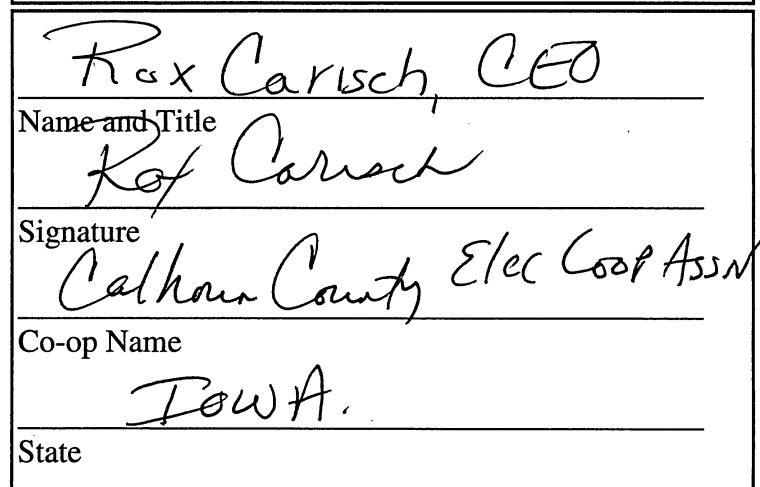 Rox Carisch, CEO
Name and Title
Rox Carisch
Signature
Calhoun County Elec Coop Assn
Co-op Name
IOWA.
State